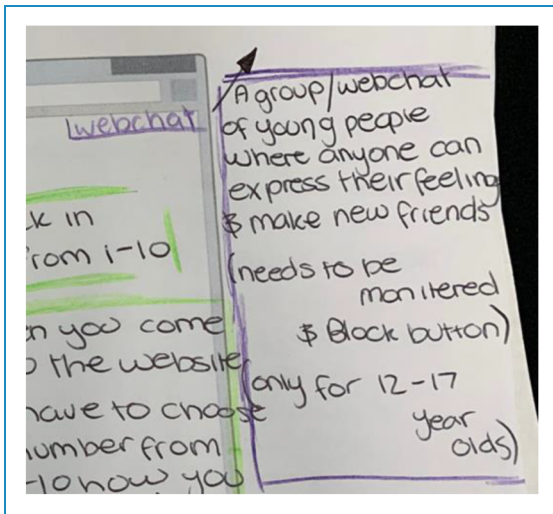 webchat
ck in
from 1-10
en you come
o the website
have to choose
number from
-10 how you
A group/webchat
of young people
where anyone can
express their feeling
& make new friends
(needs to be
monitered
& Block button)
(only for 12-17
year
olds)